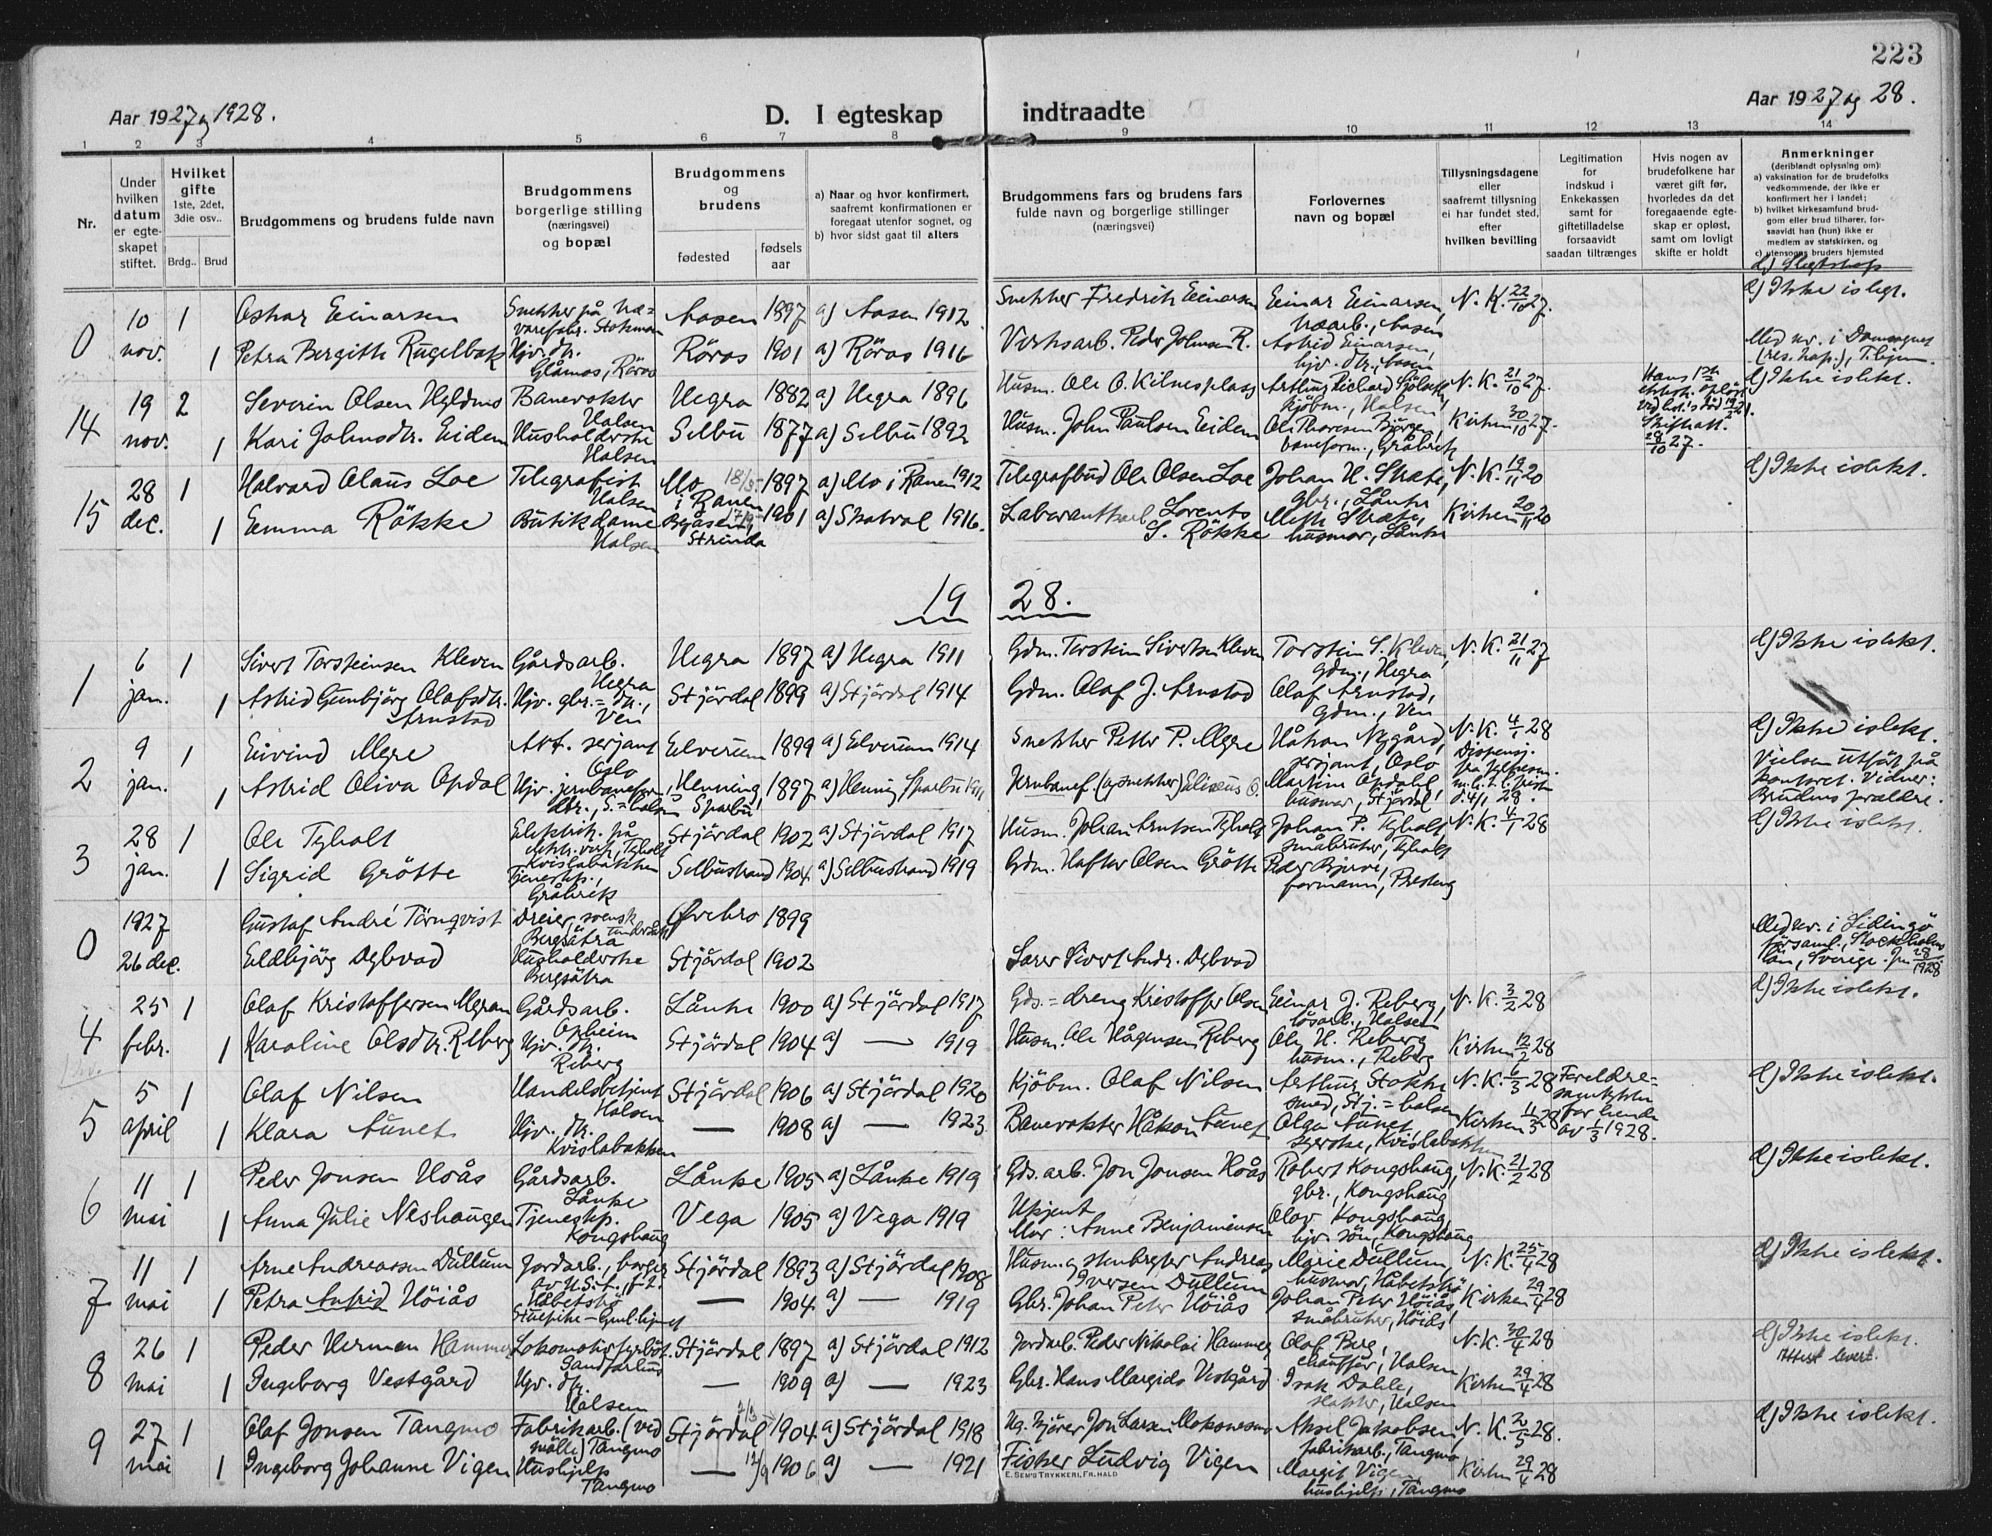 223
Aar 1927 og 1928.
D. I egteskap indtraadte
Aar 1927 og 28.
1 2 3 4 5 6 7 8 9 10 11 12 13 14
Nr.
Under hvilken datum er egteskapet stiftet.
Hvilket gifte 1ste, 2det, 3die osv..
Brdg.. Brud
Brudgommens og brudens fulde navn
Brudgommens borgerlige stilling (næringsvei) og bopæl
Brudgommens og brudens
fødested
fødselsaar
a) Naar og hvor konfirmert, saafremt konfirmationen er foregaat utenfor sognet, og
b) hvor sidst gaat til alters
Brudgommens fars og brudens fars fulde navn og borgerlige stillinger (næringsvei)
Forlovernes navn og bopæl
Tillysningsdagene eller saafremt tillysning ei har fundet sted, efter hvilken bevilling
Legitimation for indskud i Enkekassen samt for giftetilladelse forsaavidt saadan tiltrænges
Hvis nogen av brudefolkene har været gift før, hvorledes da det foregaaende egteskap er opløst, samt om lovligt skifte er holdt
Anmerkninger
(deriblandt oplysning om):
a) vaksination for de brudefolks vedkommende, der ikke er konfirmert her i landet;
b) hvilket kirkesamfund brudgom eller brud tilhører, forsaavidt han (hun) ikke er medlem av statskirken, og
c) utensogns bruders hjemsted
d) Slegtskap
0 10 nov. 1 Oskar Einarsen Aasen 1897 a) Aasen 1912 Snekker Fredrik Einarsen Einar Einarsen, Aasen N. K. 22/10 27. d) Ikke i slegt.
1 Petra Bergitte Rugelbak Hjv. dtr. Glåmos, Röros Röros 1901 a) Röros 1916 Verksarb. Peder Johnsen R. Astrid Einarsen, hjv. dtr., Aasen
14 19 nov. 2 Severin Olsen Banevokter Halsen Hegra 1882 a) Hegra 1896 Husm. Ole O. Kilnesplass kjöbm., Halsen N. K. 21/10 27. d) Ikke i slekt.
1 Kari Johnsdtr. Eidem Husholderske Halsen Selbu 1877 a) Selbu 1892 Husm. John Paulsen Eidem Ole Thoresen Björgen, baneform., Gråbrek Kirken 30/10 27. 28/10 27.
15 28 dec. 1 Halvard Olaus Loe Telegrafist Halsen Mo i Ranen 1897 a) Mo i Ranen 1912 Telegrafbud Ole Olsen Loe Johan H. Stræte, gbr., Lånke N. K. 19/11 20 d) Ikke i slekt.
1 Eemma Rökke Butikdame Halsen Strinda 1901 a) Skatval 1916. Lorents S. Rökke Stræte, husmor, Lånke Kirken 20/11 20
19 28.
1 6 jan. 1 Sivert Torsteinsen Kleven Gårdsarb. Hegra Hegra 1897 a) Hegra 1911 Gdm. Torstein Sivertsen Kleven Torstein S. Kleven, gdm., Hegra N. K. 21/11 27 d) Ikke i slekt.
1 Astrid Gunbjörg Olafsdtr. Arnstad Hjv. gbr.=dtr., Ven Stjördal 1899 a) Stjördal 1914 Gdm. Olaf J. Arnstad Olaf Arnstad, gdm., Ven
2 9 jan. 1 Eivind Mgre serjant Oslo Eelverum 1899 a) Eelverum 1914 Snekker Petter P. Mgre Håkon Nygård, serjant, Oslo N. K. 4/1 28 d) Ikke i slekt.
1 Astrid Oliva Opdal Henning, Sparbu 1897 a) Henning Martine Opdahl, husmor, Stjördal d. 4/1 28. Vielsen utfört på kontoret. Vidner: Brudens forældre.
3 28 jan. 1 Ole Tyholt Stjördal 1902 a) Stjördal 1917 Husm. Johan Arntsen Tyholt Johan P. Tyholt, småbruker, Tyholt N. K. 4/1 28 d) Ikke i slekt.
1 Sigrid Grötte Tjenestep., Gråbrek Selbustrand 1904 a) Selbustrand 1919 Gdm. Hafter Olsen Grötte Peder Bjerve, formann, Presteng
0 1927 26 dec. Gustaf André Törnqvist Dreier, svensk Bergsätra Örebro 1899 Medv. i Lidingö församl., Stockholms län, Sverige.
Eldbjörg Dybvad Husholderske Bergsätra Stjördal 1902 Sivert Andr. Dybvad
4 25 febr. 1 Olaf Kristoffersen Mgran Gårdsarb. Opheim Lånke 1900 a) Stjördal 1917 Gds.=dreng Kristoffer Olsen Einar J. Reberg, lösarb., Halsen N. K. 3/2 28 d) Ikke i slekt.
1 Karoline Olsdtr. Reberg Hjv. dtr. Reberg Stjördal 1904 a) — 1919 Husm. Ole Hågensen Reberg Ole H. Reberg husm., Reberg Kirken 12/2 28
5 5 april 1 Olaf Nilsen Handelsbetjent Halsen Stjördal 1906 a) Stjördal 1920 Kjöbm. Olaf Nilsen Arthur Stokke smed, Stj.=halsen N. K. 6/3 28 Foreldresamtykke for brud av 1/3 1928. d) Ikke i slekt.
1 Klara Aunet Hjv. dtr. Kvislabakken — 1908 a) — 1923 Banevokter Håkon Aunet Olga Aunet, syerske, Kvislabakken Kirken 11/3 28
6 11 mai 1 Peder Jonsen Hoås Gårdsarb. Lånke Lånke 1905 a) Lånke 1919 Gds. arb. Jon Jonsen Hoås Robert Kongshaug, gbr., Kongshaug N. K. 21/2 28 d) Ikke i slekt.
1 Anna Julie Neshaugen Tjenestep. Kongshaug Vega 1905 a) Vega 1919 Ukjent Mor: Anne Benjaminsen Olav Kongshaug, hjv. sön, Kongshaug
7 11 mai 1 Arne Andreassen Dullum Jordarb., borger av U.S.A. Håbetshö Stjördal 1893 a) Stjördal 1908 Husm. og stenbryter Andreas Iversen Dullum Marie Dullum, husmor, Håbetshö N. K. 25/4 28 d) Ikke i slekt.
1 Petra Astrid Höiås Stuepike — 1904 a) — 1919 Gbr. Johan Peter Höiås Johan Peter Höiås, småbruker, Höiås Kirken 29/4 28
8 26 mai 1 Peder Herman Hammer Lokomotivfyrböt. Stjördal 1897 a) Stjördal 1912 Jordarb. Peder Nikolai Hammer Olaf Berg, chauffør, Halsen N. K. 30/4 28 d) Ikke i slekt. Attest levert.
1 Ingeborg Vestgård Hjv. dtr. Halsen — 1909 a) — 1923 Gbr. Hans Margido Vestgård Isak Dahle, slakter, Halsen Kirken 29/4 28
9 27 mai 1 Olaf Jonsen Tangmo Fabrikarb. (ved mölle) Tangmo Stjördal 1904 a) Stjördal 1918 Jon Larsen Aksel Jakobsen, fabrikarb., Tangmo N. K. 2/5 28. d) Ikke i slekt.
1 Ingeborg Johanne Vigen Hushjelp Tangmo — 1906 a) — 1921 Fisker Ludvig Vigen Margit Vigen, hushjelp, Tangmo Kirken 29/4 28
E. SEM's TRYKKERI, FR.HALD